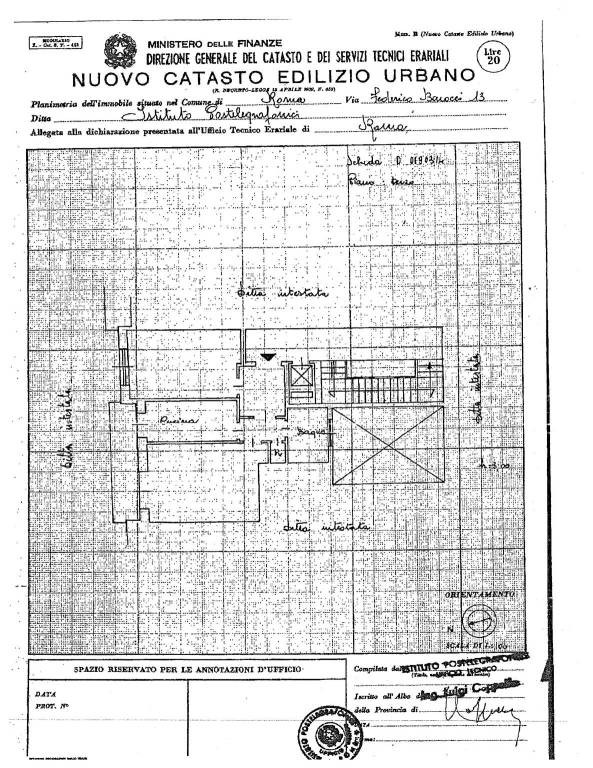 MODULARIO
F. - Cat. S. T. - 453
Mod. B (Nuovo Catasto Edilizio Urbano)
MINISTERO DELLE FINANZE
DIREZIONE GENERALE DEL CATASTO E DEI SERVIZI TECNICI ERARIALI
NUOVO CATASTO EDILIZIO URBANO
Lire
20
Planimetria dell'immobile situato nel Comune di Roma Via Federico Barocci 13
Ditta Istituto Postelegrafonici
Allegata alla dichiarazione presentata all'Ufficio Tecnico Erariale di Roma
Scheda D
Piano: terzo
Ditta intestata
Ditta intestata
Ditta intestata
Cucina
Bagno
R
h=3,00
Ditta intestata
ORIENTAMENTO
N
SCALA DI 1:
SPAZIO RISERVATO PER LE ANNOTAZIONI D'UFFICIO
DATA
PROT. N°
Compilata dall' ISTITUTO POSTELEGRAFONICI
UFFICIO TECNICO
Iscritto all'Albo Ing. Luigi Coppola
della Provincia di